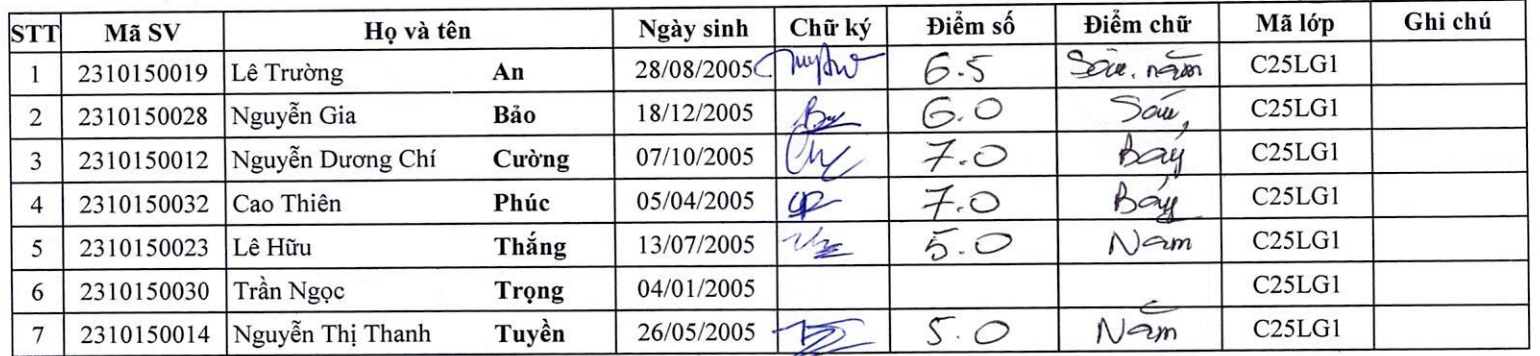 STT Mã SV Họ và tên Ngày sinh Chữ ký Điểm số Điểm chữ Mã lớp Ghi chú
1 2310150019 Lê Trường An 28/08/2005 6.5 Sáu. năm C25LG1
2 2310150028 Nguyễn Gia Bảo 18/12/2005 6.0 Sáu C25LG1
3 2310150012 Nguyễn Dương Chí Cường 07/10/2005 7.0 Bảy C25LG1
4 2310150032 Cao Thiên Phúc 05/04/2005 7.0 Bảy C25LG1
5 2310150023 Lê Hữu Thắng 13/07/2005 5.0 Năm C25LG1
6 2310150030 Trần Ngọc Trọng 04/01/2005 C25LG1
7 2310150014 Nguyễn Thị Thanh Tuyền 26/05/2005 5.0 Năm C25LG1